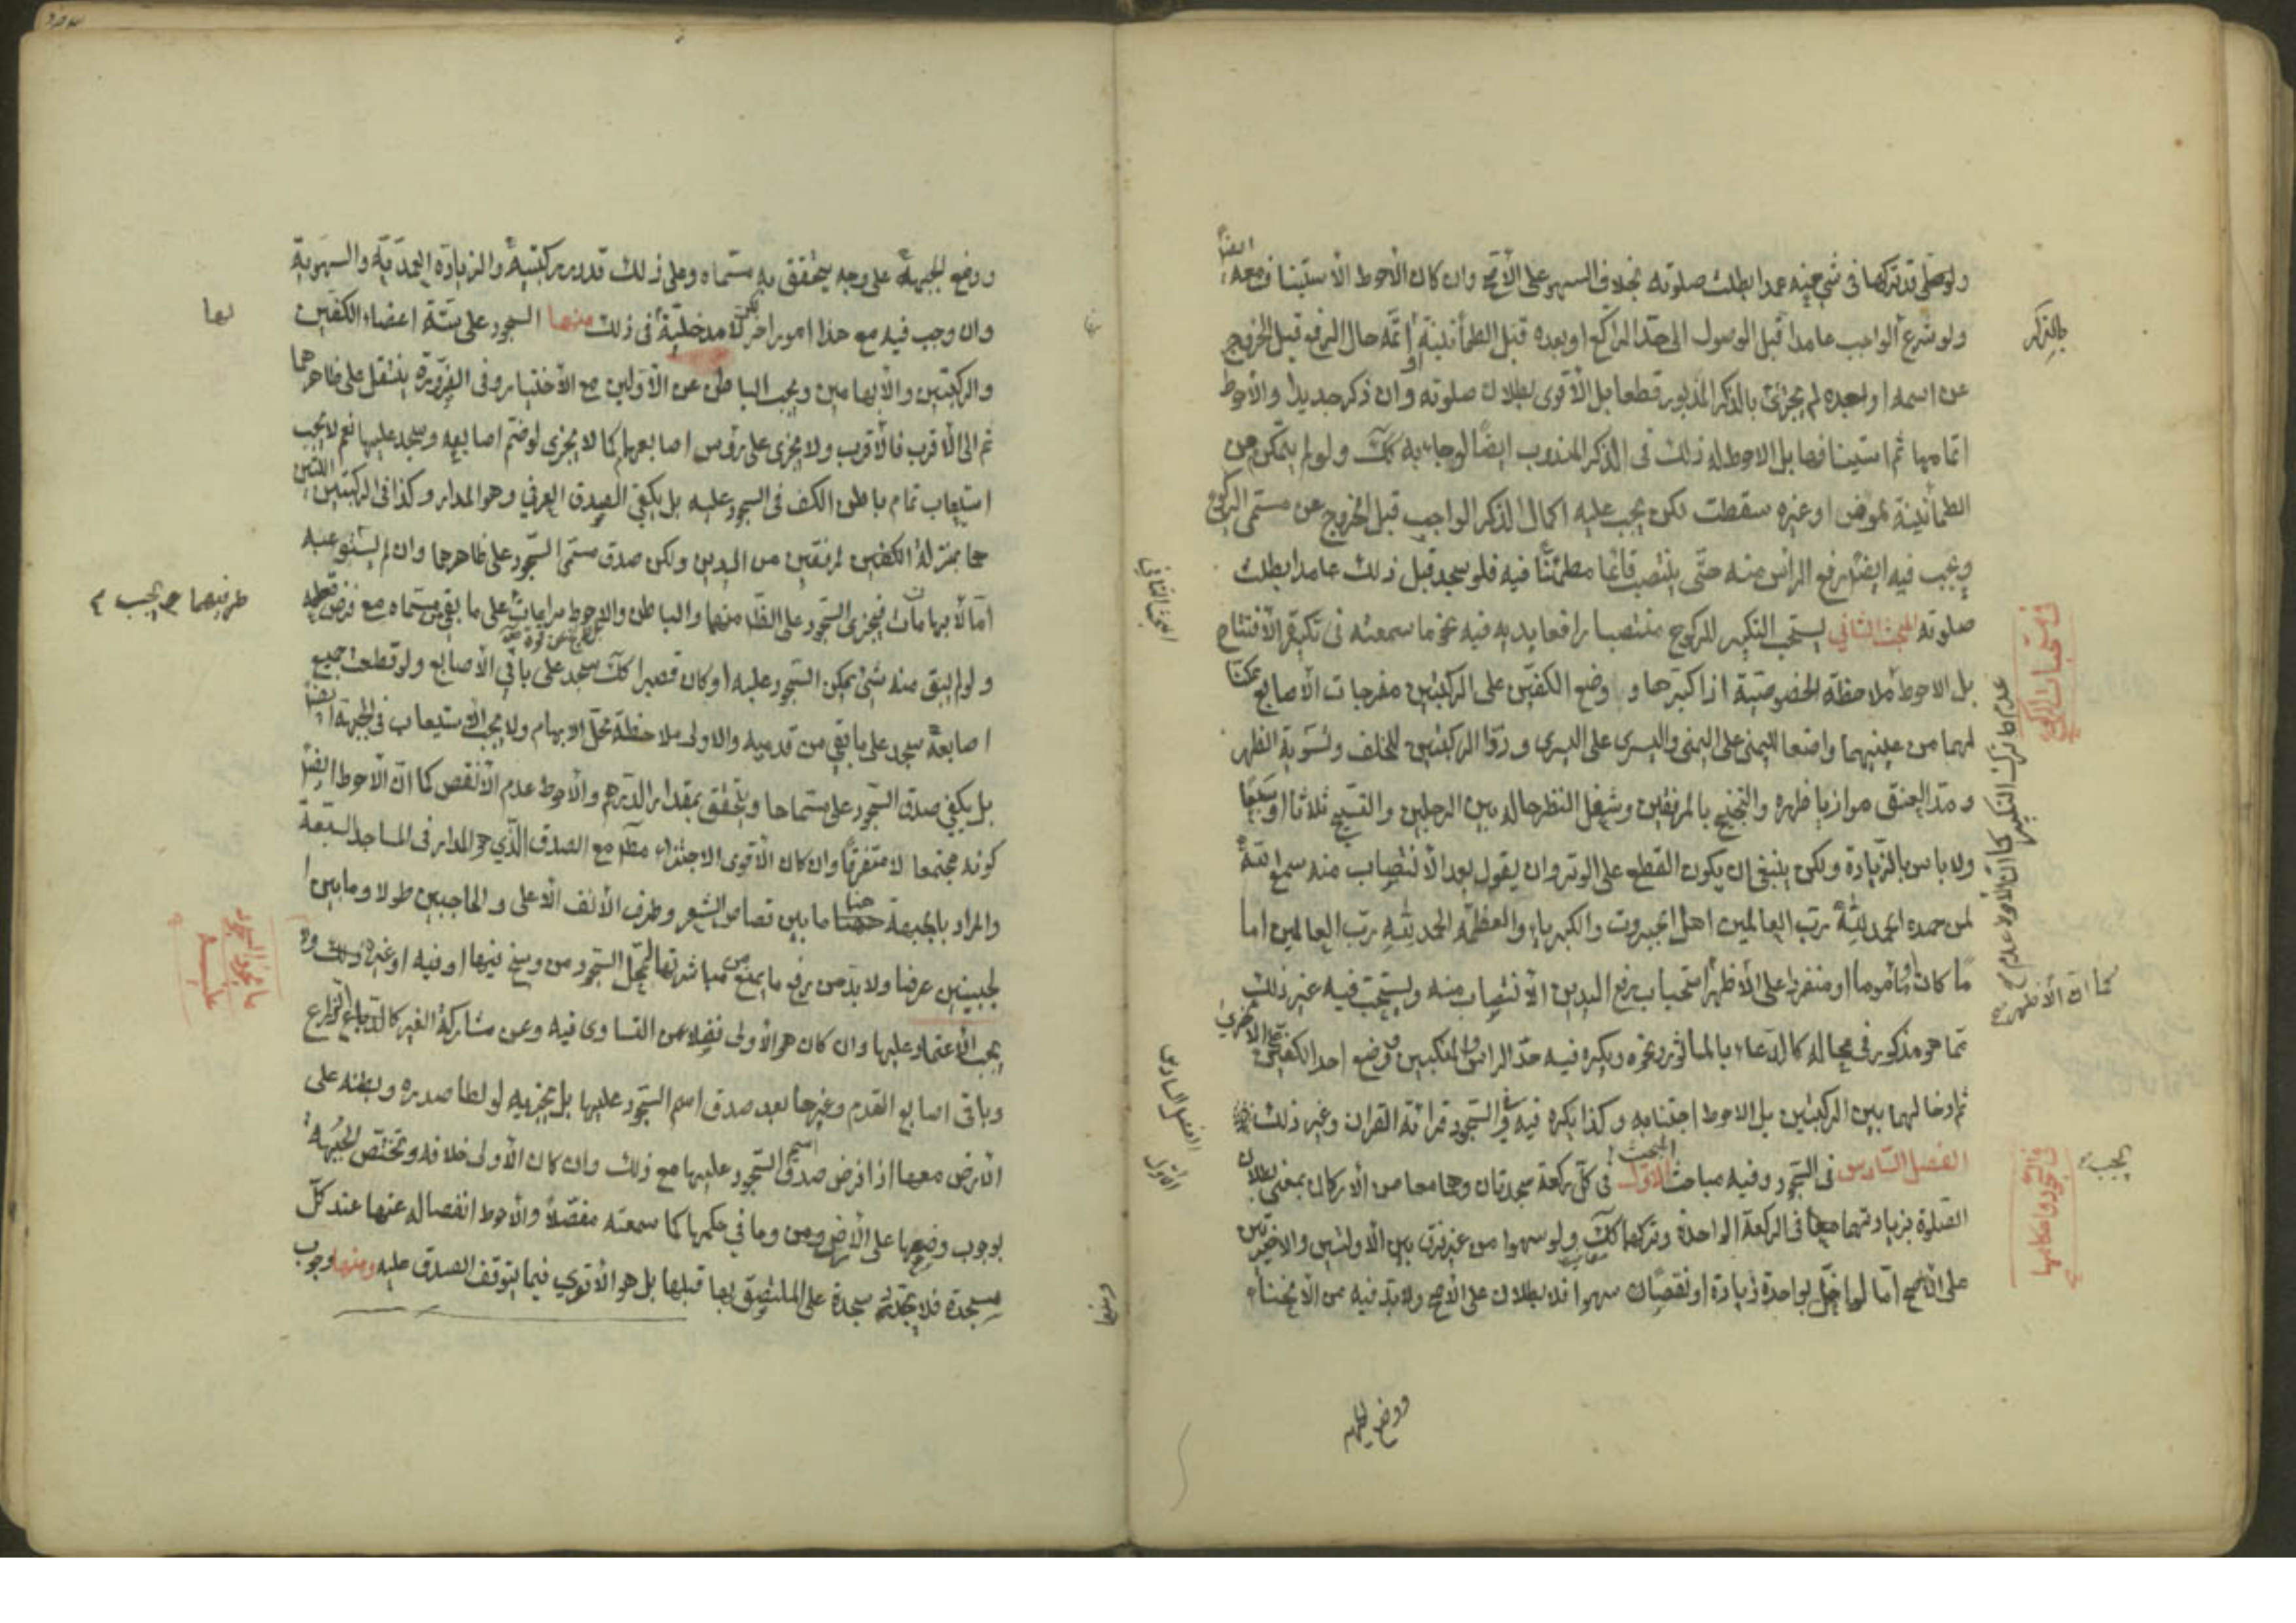 ولو صلى قد تركها في شيء منه عمدا بطلت صلوته بخلاف السهو على الأصح وان كان الأحوط الأستيناف معه ايضاً
ولو شرع الواجب عامدا قبل الوصول الى حد الراكع او بعده قبل الطمأنينة او اتمه حال الرفع قبل الخروج
عن اسمه او بعده لم يجزئ بالذكر المذبور قطعا بل الأقوى بطلان صلوته وان ذكر جديدا والأحوط
اتمامها ثم استينافها بل الاحوط له ذلك في الذكر المندوب ايضا لو جاء به كك ولو لم يتمكن من
الطمأنينة لمرض او غيره سقطت لكن يجب عليه اكمال الذكر الواجب قبل الخروج عن مسمى الركوع
ويجب فيه ايضا رفع الرأس منه حتى ينتصب قائما مطمئنا فيه فلو سجد قبل ذلك عامدا بطلت
صلوته المبحث الثاني يستحب التكبير للركوع منتصبا رافعا يديه فيه نحو ما سمعته في تكبيرة الأفتتاح
بل الاحوط ملاحظة الخصوصية اذا كبرها و وضع الكفين على الركبتين مفرجات الأصابع ممكنا
لهما من عينيهما واضعا اليمنى على اليمنى واليسرى على اليسرى ورد الركبتين للخلف وتسوية الظهر
ومد العنق موازيا ظهره والتجنيح بالمرفقين وشغل النظر حاله بين الرجلين والتسبيح ثلاثا او سبعا
ولا باس بالزيادة ولكن ينبغي ان يكون القطع على الوتر وان يقول بعد الأنتصاب منه سمع الله
لمن حمده الحمد لله رب العالمين اهل الجبروت والكبرياء والعظمة الحمد لله رب العالمين اما
ما كان او مأموما او منفردا على الأظهر استحباب رفع اليدين الأنتصاب منه ويستحب فيه غير ذلك
مما هو مذكور في محاله كالدعاء بالمأثور ونحوه ويكره فيه حد الراس والمنكبين ووضع احد الكفين على الأخرى
ثم ادخالهما بين الركبتين بل الاحوط اجتنابه وكذا يكره فيه وفي السجود قرائة القران وغير ذلك
الفصل السادس في السجود وفيه مباحث المبحث الأول في كل ركعة سجدتان وهما معا من الأركان بمعنى بطلان
الصلوة بزيادتهما معا في الركعة الواحدة وتركهما كك ولو سهوا من غير فرق بين الأولتين والاخيرتين
على الأصح اما لو اخل بواحدة زيادة او نقصان سهوا فلا بطلان على الأصح ولابد فيه من الأنحناء
بالذكر
في مستحبات الركوع
كما ان الأظهر
يجب
في السجود واحكامها
المبحث الثاني
الفصل السادس
الأول
ووضع الجبهه
ووضع الجبهة على وجه يتحقق به مسماه وعلى ذلك تدور ركنيته والزيادة العمدية والسهوية
وان وجب فيه مع هذا امور اخر لكن لا مدخلية في ذلك منها السجود على ستة اعضاء الكفين
والركبتين والأبهامين ويجب الباطن من الأولين مع الأختيار وفي الضرورة ينتقل على ظاهرهما
ثم الى الأقرب فالأقرب ولا يجزى على رؤس اصابعهما كما لا يجزى لو ضم اصابعه وسجد عليها نعم لا يجب
استيعاب تمام باطن الكف في السجود عليه بل يكفي الصدق العرفي وهو المدار وكذا في الركبتين اللتين
هما بمنزلة الكفين لمرفقين من اليدين ولكن صدق مسمى السجود على ظاهرها وان لم يستوعبه
اما الأبهامان فيجزى السجود على الظاهر منهما والباطن والاحوط مراعات على ما بقي من مسماه مع فرض قطعه
ولو لم يبق منه شيء يمكن السجود عليه او كان قصيرا كك سجد على باقي الأصابع ولو قطعت جميع
اصابعه سجد على ما بقي من قدميه والاولى ملاحظة محل الابهام ولا يجب الأستيعاب في الجبهة ايضاً
بل يكفي صدق السجود على مسماها ويتحقق بمقدار الدرهم والأحوط عدم الأنقص كما ان الأحوط ايضاً
كونه مجتمعا لا متفرقا وان كان الأقوى الاجتزاء مع الصدق الذي هو المدار في المساجد السبعة
والمراد بالجبهة هنا ما بين قصاص الشعر وطرف الأنف الأعلى والحاجبين طولا وما بين ا
لجبينين عرضا ولا بد من رفع ما يمنع من مباشرتها لمحل السجود من وسخ فيها او فيه او غيره ولا
يجب الأعتماد عليها وان كان هو الأولى فضلا عن التساوى فيه وعن مشاركة الغير كالذراع
وباقي اصابع القدم وغيرها بعد صدق اسم السجود عليها بل يجزيه لو لطا صدره وبطنه على
الأرض معها اذا فرض صدق اسم السجود عليها مع ذلك وان كان الأولى خلافه وتختص الجبهة
بوجوب وضعها على الأرض ومن وما في حكمها كما سمعته مفصلا والأحوط انفصاله عنها عند كل
سجدة فلا يجتزء سجدة على الملتصق بها قبلها بل هو الأقوى فيما يتوقف الصدق عليه ومنها وجوب
ما يجوز السجود عليه